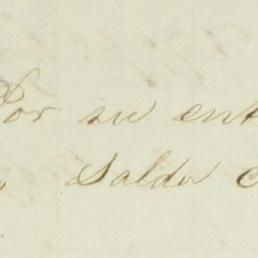 Por su ent
Saldo c